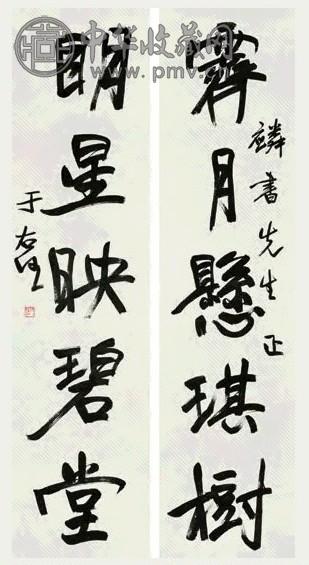 霽月懸琪樹
麟書先生正
明星映碧堂
于右任
中华收藏网
www.pmv.cn